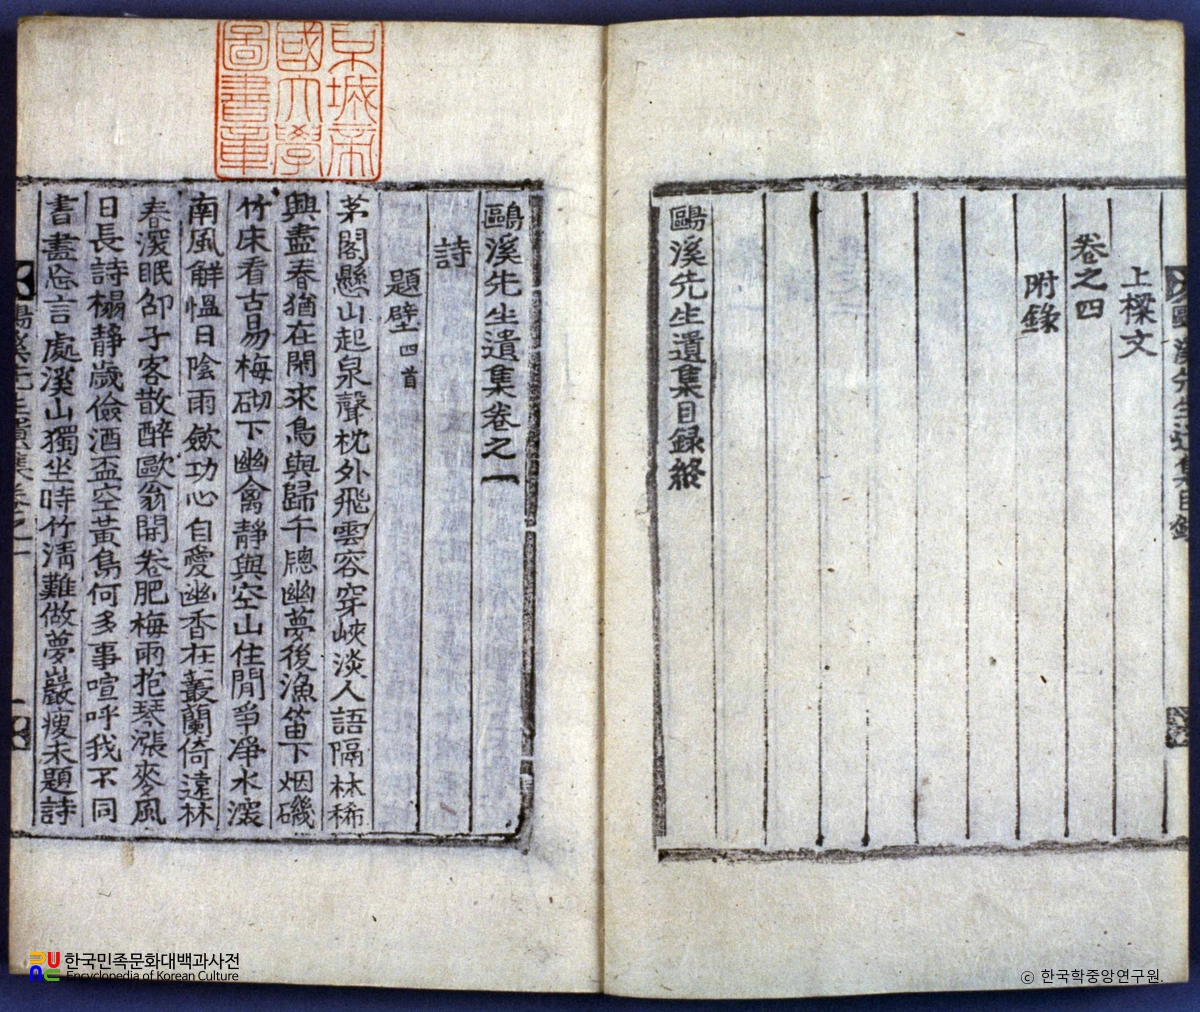 鷗溪先生遺集目錄
上樑文
卷之四
附錄
鷗溪先生遺集目録終
京城帝國大學圖書章
鷗溪先生遺集卷之一
詩
題壁四首
茅閣懸山起泉聲枕外飛雲容穿峽淡人語隔林稀
興盡春猶在閑來鳥與歸午牕幽夢後漁笛下烟磯
竹床看古易梅砌下幽禽靜與空山住閒爭淨水深
南風解慍日陰雨斂功心自愛幽香在叢蘭倚遠林
春深眠邵子客散醉歐翁開卷肥梅雨抱琴漲麥風
日長詩榻靜歲儉酒盃空黃鳥何多事喧呼我不同
書盡忘言處溪山獨坐時竹淸難做夢巖瘦未題詩
鷗溪先生遺集卷之一
한국민족문화대백과사전
Encyclopedia of Korean Culture
ⓒ 한국학중앙연구원.